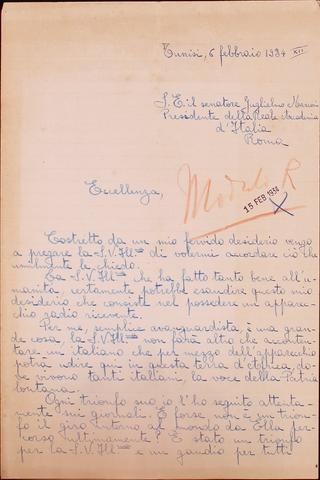 Tunisi, 6 febbraio 1934 XII
S. E. il senatore Guglielmo Marconi
Presidente della Reale Accademia
d'Italia
Roma
Eccellenza,
Modulo R
15 FEB 1934
Costretto da un mio fervido desiderio vengo
a pregare la S. V. Ill.ma di volermi accordare ciò che
umilmente le chiedo.
La S. V. Ill.ma che ha fatto tanto bene all'u-
manità, certamente potrebbe esaudire questo mio
desiderio che consiste nel possedere un apparec-
chio radio ricevente.
Per me, semplice avanguardista, è una gran-
de cosa, la S. V. Ill.ma non farà altro che acconten-
tare un italiano che per mezzo dell'apparecchio
potrà udire qui in questa terra d'Africa, do-
ve vivono tanti italiani, la voce della Patria
lontana.
Ogni trionfo suo io l'ho seguito attenta-
mente sui giornali. E forse non è un trion-
fo il giro intorno al mondo da Ella per-
corso ultimamente? È stato un trionfo
per la S. V. Ill.ma e un gaudio per tutti